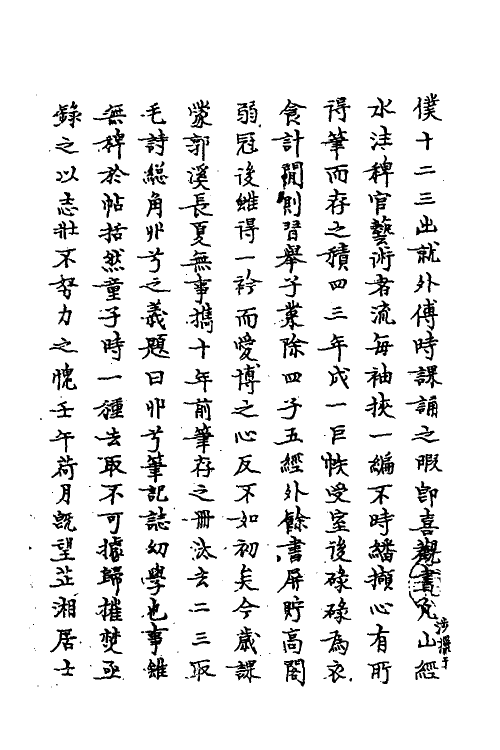 僕十二三出就外傅時課誦之暇卽喜觀書凡山經
涉獵于
水注稗官藝術者流每袖挾一編不時繙擷心有所
得筆而存之積四三年成一巨帙受室後碌碌為衣
食計閒則習舉子業除四子五經外餘書屏貯高閣
弱冠後雖得一衿而愛博之心反不如初矣今歲課
蒙郭溪長夏無事攜十年前筆存之冊汰去二三取
毛詩総角丱兮之義題曰丱兮筆記誌幼學也事雖
無稗於帖括然童子時一種去取不可據歸摧焚亟
錄之以志壯不努力之愧壬午荷月旣望芷湘居士